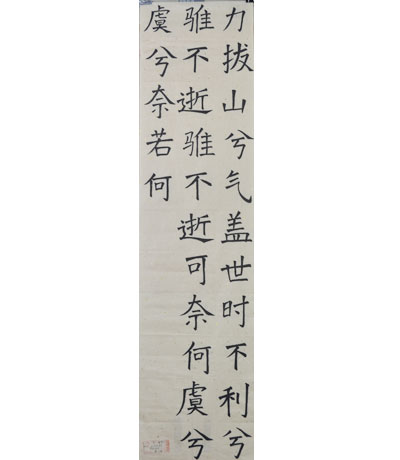 力拔山兮气盖世时不利兮
骓不逝骓不逝可奈何虞兮
虞兮奈若何